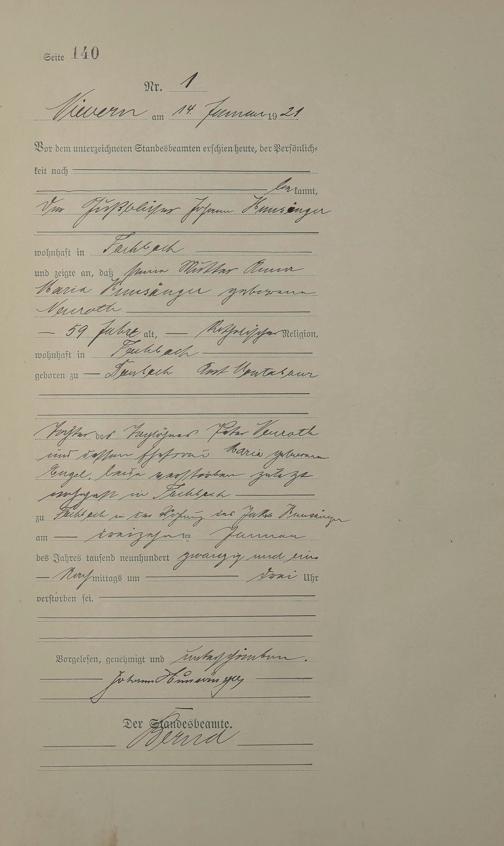 Seite 140
Nr. 1
Nievern am 14. Januar 1921
Vor dem unterzeichneten Standesbeamten erschien heute, der Persönlich-
keit nach
bekannt,
Der Johann Hunsänger
wohnhaft in Fachbach
und zeigte an, daß seine Mutter Anna
Maria Hunsänger geborene
Neuroth
59 Jahre alt, Katholischer Religion,
wohnhaft in Fachbach
geboren zu Post Montabaur
Tochter des Taglöhners Peter Neuroth
und dessen Ehefrau Maria geborene
Engel, beide verstorben zuletzt
wohnhaft in Fachbach
zu Fachbach in der Wohnung des Jakob Hunsänger
am dreizehnten Januar
des Jahres tausend neunhundert zwanzig und eins
Nachmittags um drei Uhr
verstorben sei.
Vorgelesen, genehmigt und unterschrieben.
Johann Hunsänger
Der Standesbeamte.